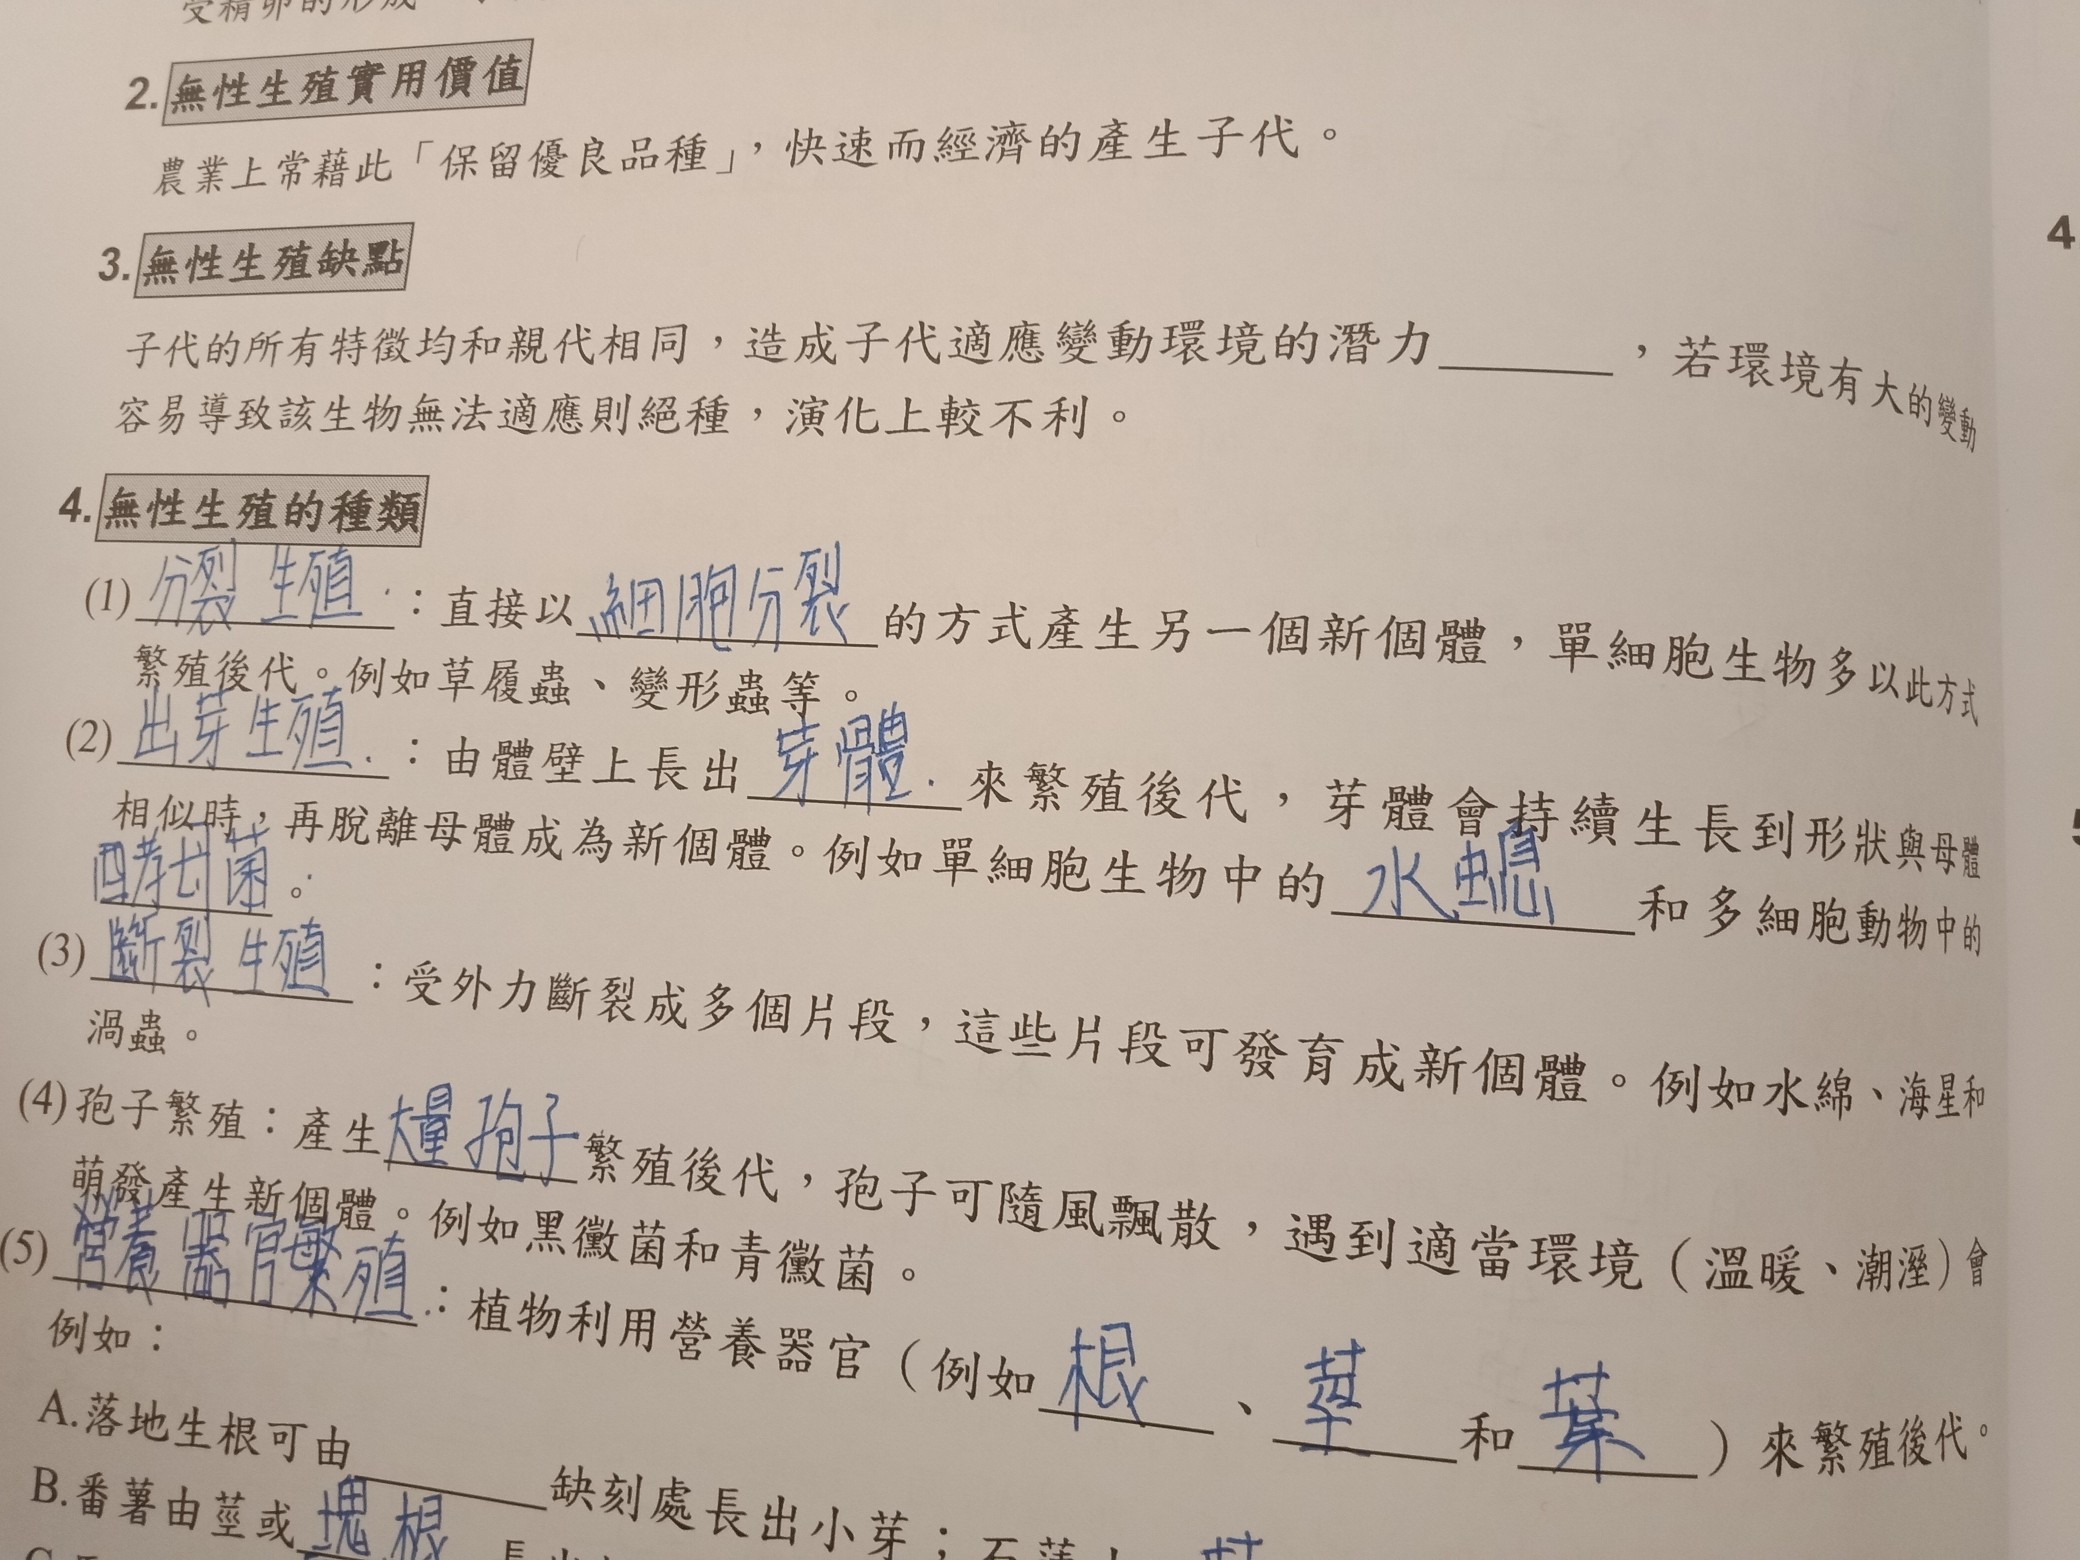 受精卵的形成
2.無性生殖實用價值
農業上常藉此「保留優良品種」，快速而經濟的產生子代。
3.無性生殖缺點
4
子代的所有特徵均和親代相同，造成子代適應變動環境的潛力______，若環境有大的變動
容易導致該生物無法適應則絕種，演化上較不利。
4.無性生殖的種類
(1)分裂生殖：直接以細胞分裂的方式產生另一個新個體，單細胞生物多以此方式
繁殖後代。例如草履蟲、變形蟲等。
(2)出芽生殖：由體壁上長出芽體來繁殖後代，芽體會持續生長到形狀與母體
相似時，再脫離母體成為新個體。例如單細胞生物中的水螅和多細胞動物中的
酵母菌。
(3)斷裂生殖：受外力斷裂成多個片段，這些片段可發育成新個體。例如水綿、海星和
渦蟲。
(4)孢子繁殖：產生大量孢子繁殖後代，孢子可隨風飄散，遇到適當環境（溫暖、潮溼）會
萌發產生新個體。例如黑黴菌和青黴菌。
(5)營養器官繁殖：植物利用營養器官（例如根、莖和葉）來繁殖後代。
例如：
A.落地生根可由______缺刻處長出小芽；石蓮
B.番薯由莖或塊根長出